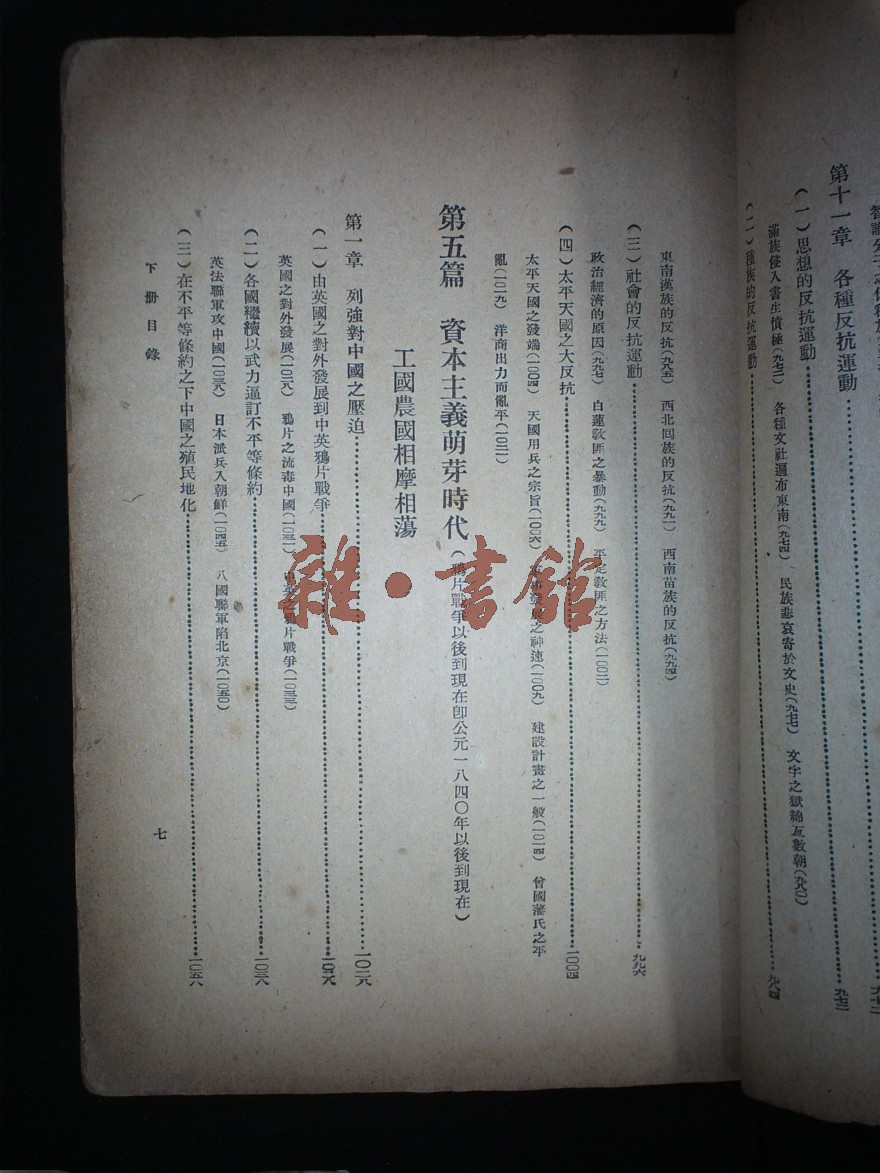 第十一章　各種反抗運動⋯⋯九七二
（一）思想的反抗運動⋯⋯九七二
滿族侵入書生憤極（九七二）　各種文社遍布東南（九七四）　民族悲哀寄於文史（九七七）　文字之獄綿亙數朝（九八〇）
（二）種族的反抗運動⋯⋯九八四
東南漢族的反抗（九八五）　西北回族的反抗（九九一）　西南苗族的反抗（九九四）
（三）社會的反抗運動⋯⋯九九六
政治經濟的原因（九九七）　白蓮教匪之暴動（九九九）　平定教匪之方法（一〇〇二）
（四）太平天國之大反抗⋯⋯一〇〇四
太平天國之發端（一〇〇四）　天國用兵之宗旨（一〇〇六）　之神速（一〇〇九）　建設計畫之一般（一〇一四）　曾國藩氏之平
亂（一〇一九）　洋商出力而亂平（一〇二二）
第五篇　資本主義萌芽時代（鴉片戰爭以後到現在卽公元一八四〇年以後到現在）
工國農國相摩相蕩
第一章　列強對中國之壓迫⋯⋯一〇二九
（一）由英國之對外發展到中英鴉片戰爭⋯⋯一〇二九
英國之對外發展（一〇二九）　鴉片之流毒中國（一〇三一）　鴉片戰爭（一〇三三）
（二）各國繼續以武力逼訂不平等條約⋯⋯一〇三八
英法聯軍攻中國（一〇三八）　日本派兵入朝鮮（一〇四五）　八國聯軍陷北京（一〇五〇）
（三）在不平等條約之下中國之殖民地化⋯⋯一〇五八
下冊目錄
七
雜·書館